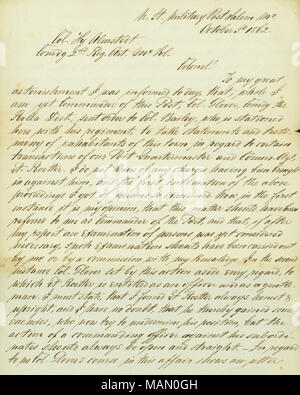 U. St. Military Post Salem Mo.
October 3d 1862.
Col. Hy Almstedt
comdg 2nd Reg. Art. Mo. Vol.
Colonel!
To my great
astonishment I was informed to day, that, while I
am yet Commander of this Post, Col. Glover, comdg the
Rolla Dist., sent order to Col. Bailey, who is stationed
here with his regiment, to take statements and testi-
mony of inhabitants of this town, in regard to certain
transactions of our Post Quartermaster and Commissary
Lt. Koetter. I do not know of any charges having been brought
in against him, and the first information of the above
proceedings I got of persons residing here. In the first
instance it is my opinion, that the matter should have been
referred to me as Commander of the Post, and that, if after
my report an examination of persons was yet considered
necessary, such examination should have been carried out
by me or by a commission with my knowledge. In the second
instance Col. Glover set by this action aside every regard, to
which Lt. Koetter is entitled as an officer and as a gentle-
man. I must state, that I found Lt. Koetter always honest &
upright, and I have no doubt, that he thereby gained some
enemies, who now try to undermine his position, but the
action of a commanding officer against his subordi-
nates should always be open and straight. In regard
to me Col. Glover's course in this affair shows an utter
alamy
MAN0GH